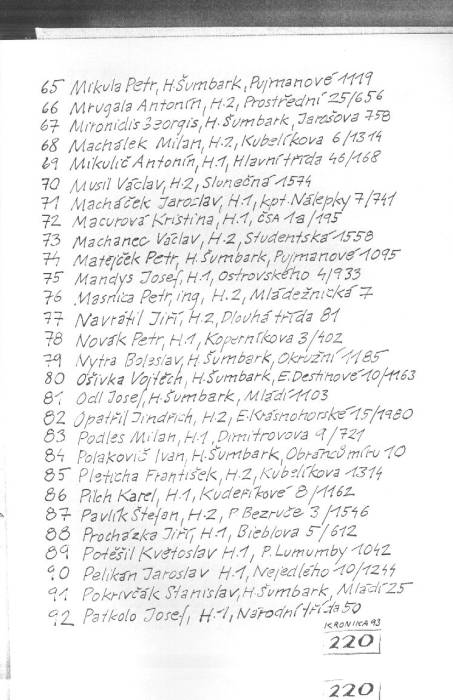 65 Mikula Petr, H.Šumbark, Pujmanové 1119
66 Mrugala Antonín, H.2, Prostřední 25/656
67 Mironidis Georgis, H.Šumbark, Jarošova 758
68 Machálek Milan, H.2, Kubelíkova 6/1314
69 Mikulič Antonín, H.1, Hlavní třída 46/168
70 Musil Václav, H.2, Slunečná 1574
71 Macháček Jaroslav, H.1, kpt. Nálepky 7/741
72 Macurová Kristina, H.1, ČSA 1a/195
73 Machanec Václav, H.2, Studentská 1558
74 Matejček Petr, H.Šumbark, Pujmanové 1095
75 Mandys Josef, H.1, Ostrovského 4/933
76 Masnica Petr, ing, H.2, Mládežnická 7
77 Navrátil Jiří, H.2, Dlouhá třída 81
78 Novák Petr, H.1, Koperníkova 3/402
79 Nytra Boleslav, H.Šumbark, Okružní 1185
80 Ošivka Vojtěch, H.Šumbark, E.Destinové 10/1163
81 Odl Josef, H.Šumbark, Mládí 1103
82 Opatřil Jindřich, H.2, E.Krásnohorské 15/1980
83 Podles Milan, H.1, Dimitrovova 9/721
84 Polakovič Ivan, H.Šumbark, Obránců míru 10
85 Pleticha František, H.2, Kubelíkova 1314
86 Pilch Karel, H.1, Kudeříkové 8/1162
87 Pavlík Štefan, H.2, P Bezruče 3/1546
88 Procházka Jiří, H.1, Bieblova 5/612
89 Potěšil Květoslav H.1, P. Lumumby 1042
90 Pelikán Jaroslav H.1, Nejedlého 10/1244
91 Pokrivčák Stanislav, H.Šumbark, Mládí 25
92 Patkolo Josef, H.1, Národní třída 50
KRONIKA 93
220
220